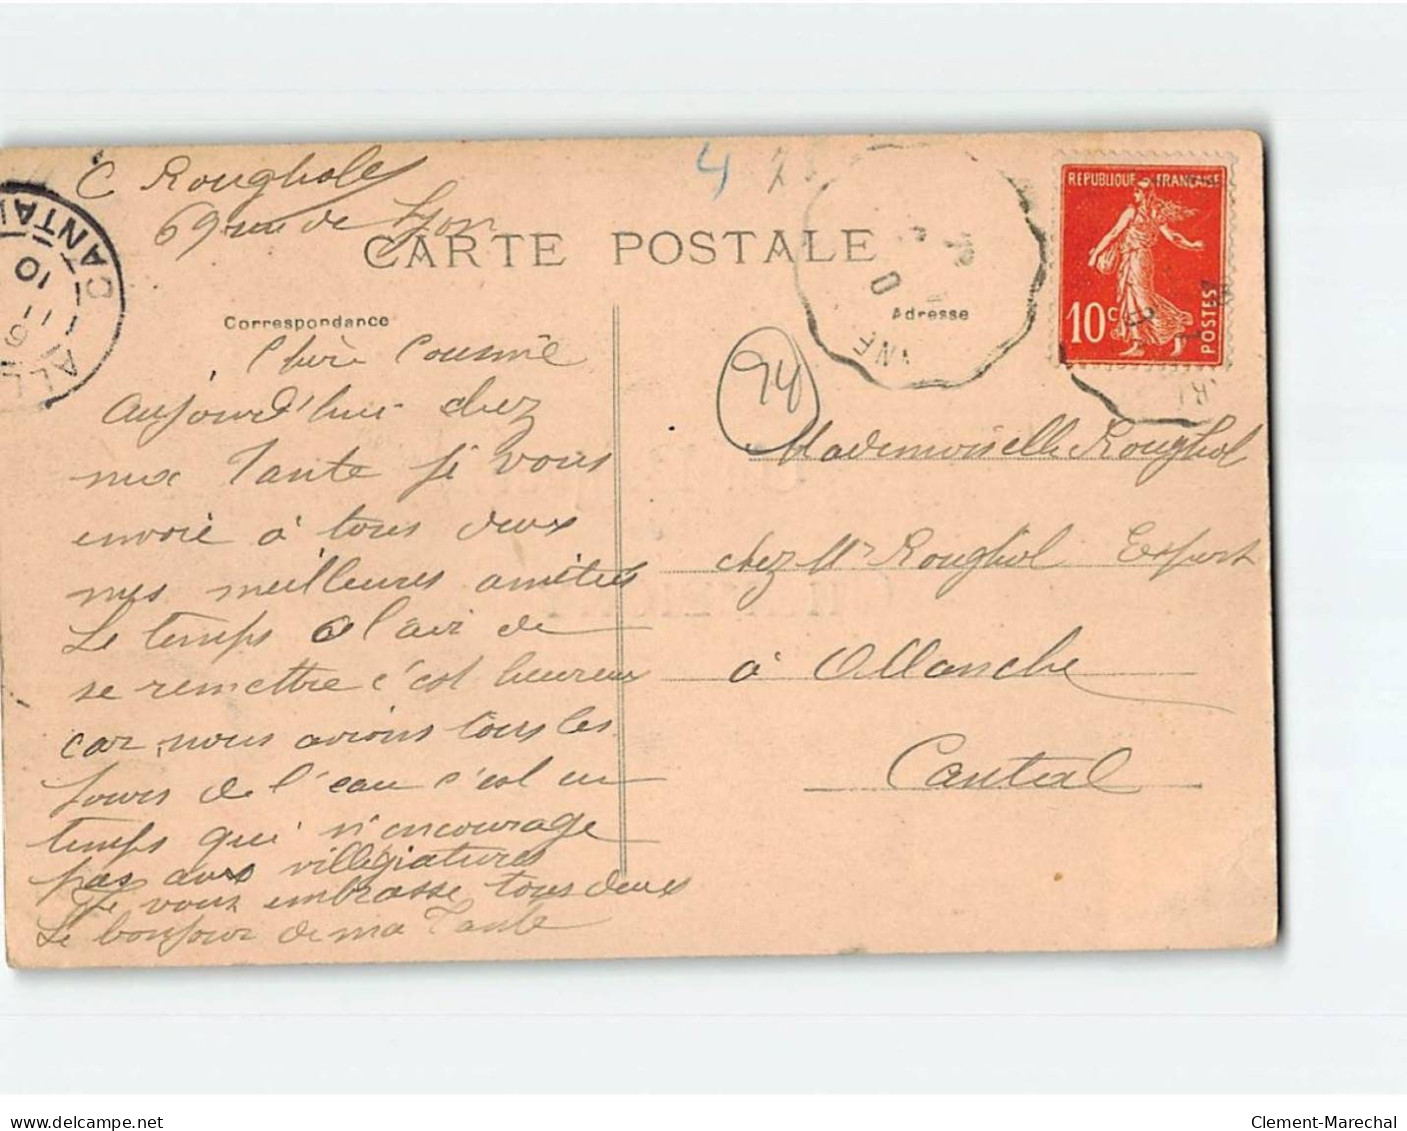 C Roughole
69 rue de Lyon
CARTE POSTALE
4
CANTAL
10
REPUBLIQUE FRANCAISE
10c
POSTES
Correspondance
Adresse
94
Chère Cousine
Aujourd'hui chez
ma Tante je vous
envoie à tous deux
mes meilleures amitiés
Le temps a l'air de
se remettre c'est heureux
car nous avions tous les
jours de l'eau c'est un
temps qui n'encourage
pas aux villégiatures
Je vous embrasse tous deux
Le bonjour de ma Tante
Mademoiselle Roughol
chez Mr Roughol Expert
à Allanche
Cantal
www.delcampe.net
Clement-Marechal